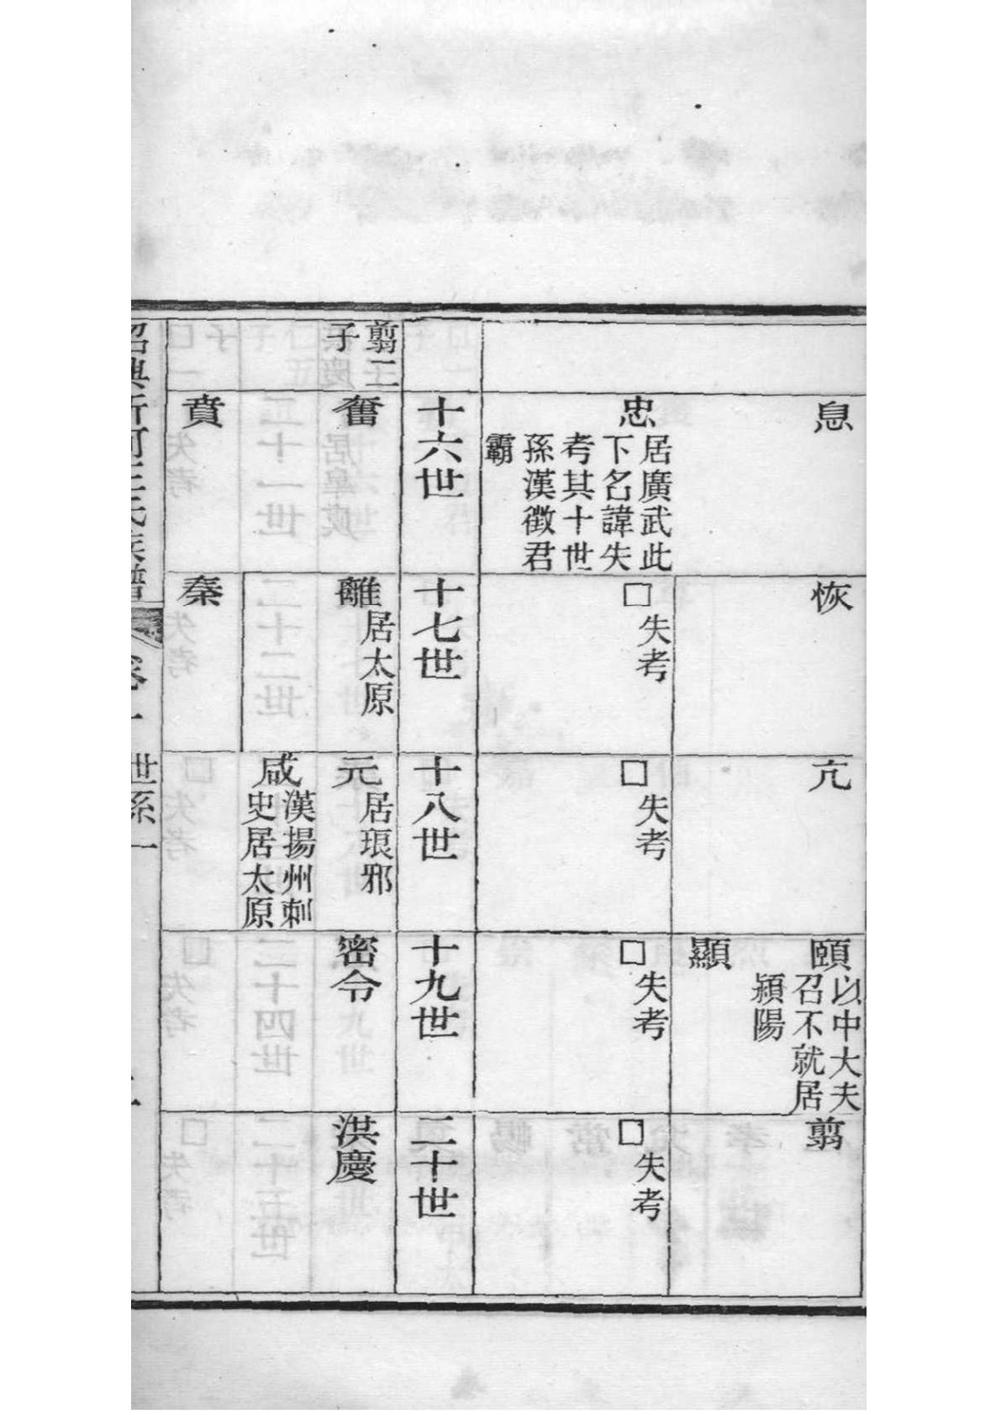 息
恢
亢
頤
以中大夫
召不就居
潁陽
顯
翦
忠
居廣武此
下名諱失
考其十世
孫漢徵君
霸
□失考
□失考
□失考
□失考
十六世
十七世
十八世
十九世
二十世
翦二
子
奮
離
居太原
元
居琅邪
密令
洪慶
咸
漢揚州刺
史居太原
賁
秦
世系一